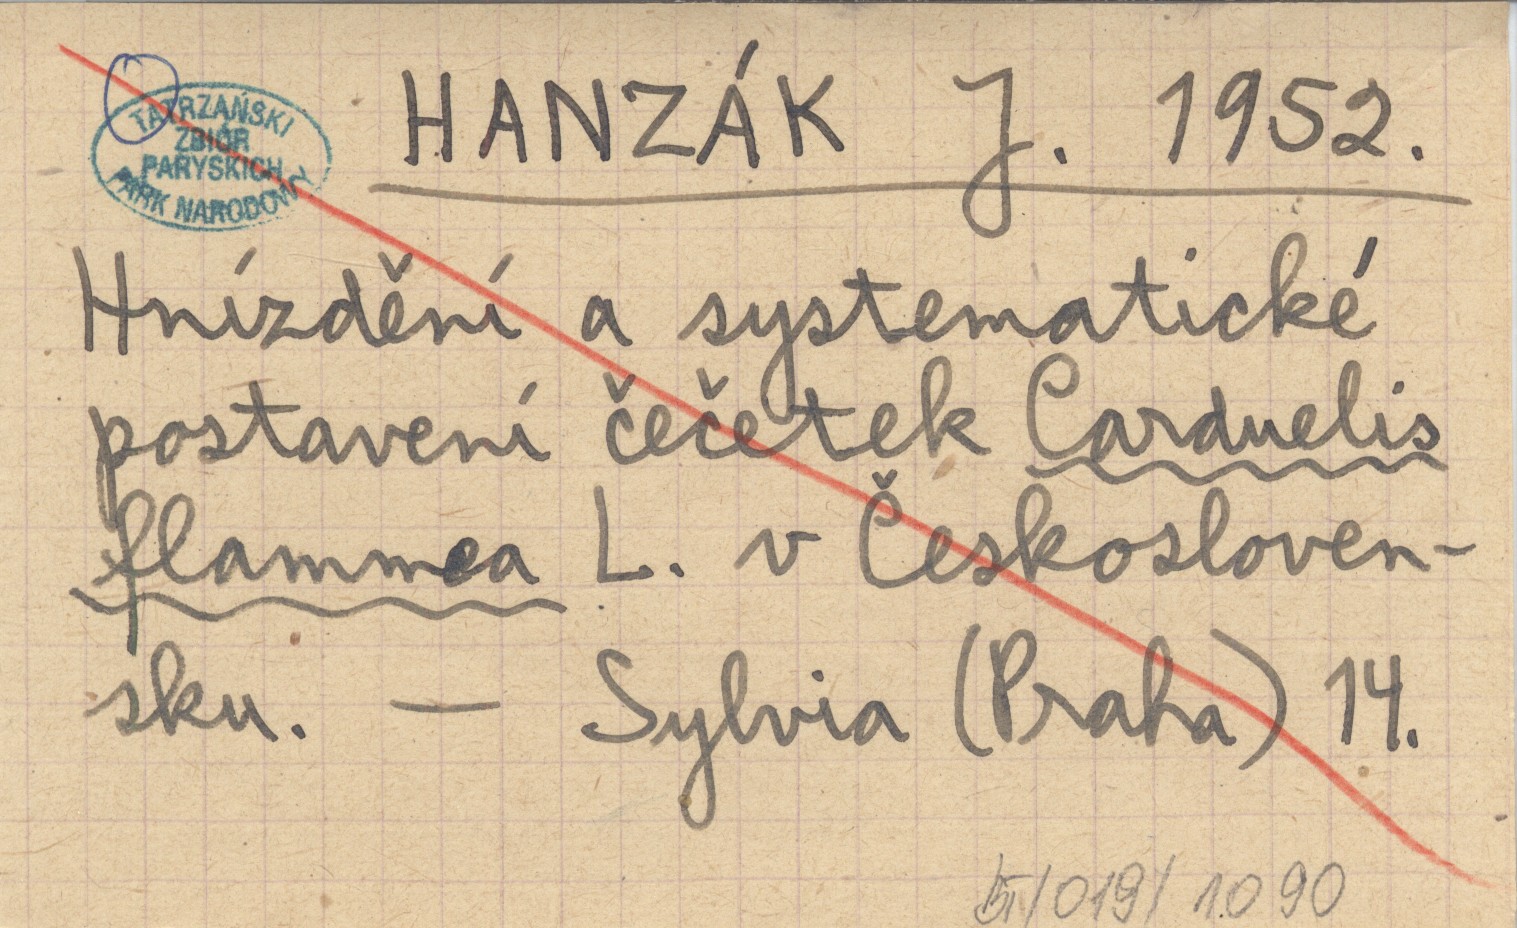 TATRZAŃSKI
ZBIÓR
PARYSKICH
PARK NARODOWY
HANZÁK J. 1952.
Hnízdění a systematické
postavení čečetek Carduelis
flammea L. v Českosloven-
sku. — Sylvia (Praha) 14.
/019/1090